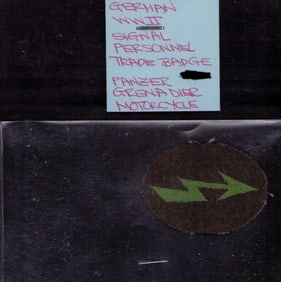 GERMAN
WWII
SIGNAL
PERSONNEL
TRADE BADGE
PANZER
GRENADIER
MOTORCYCLE